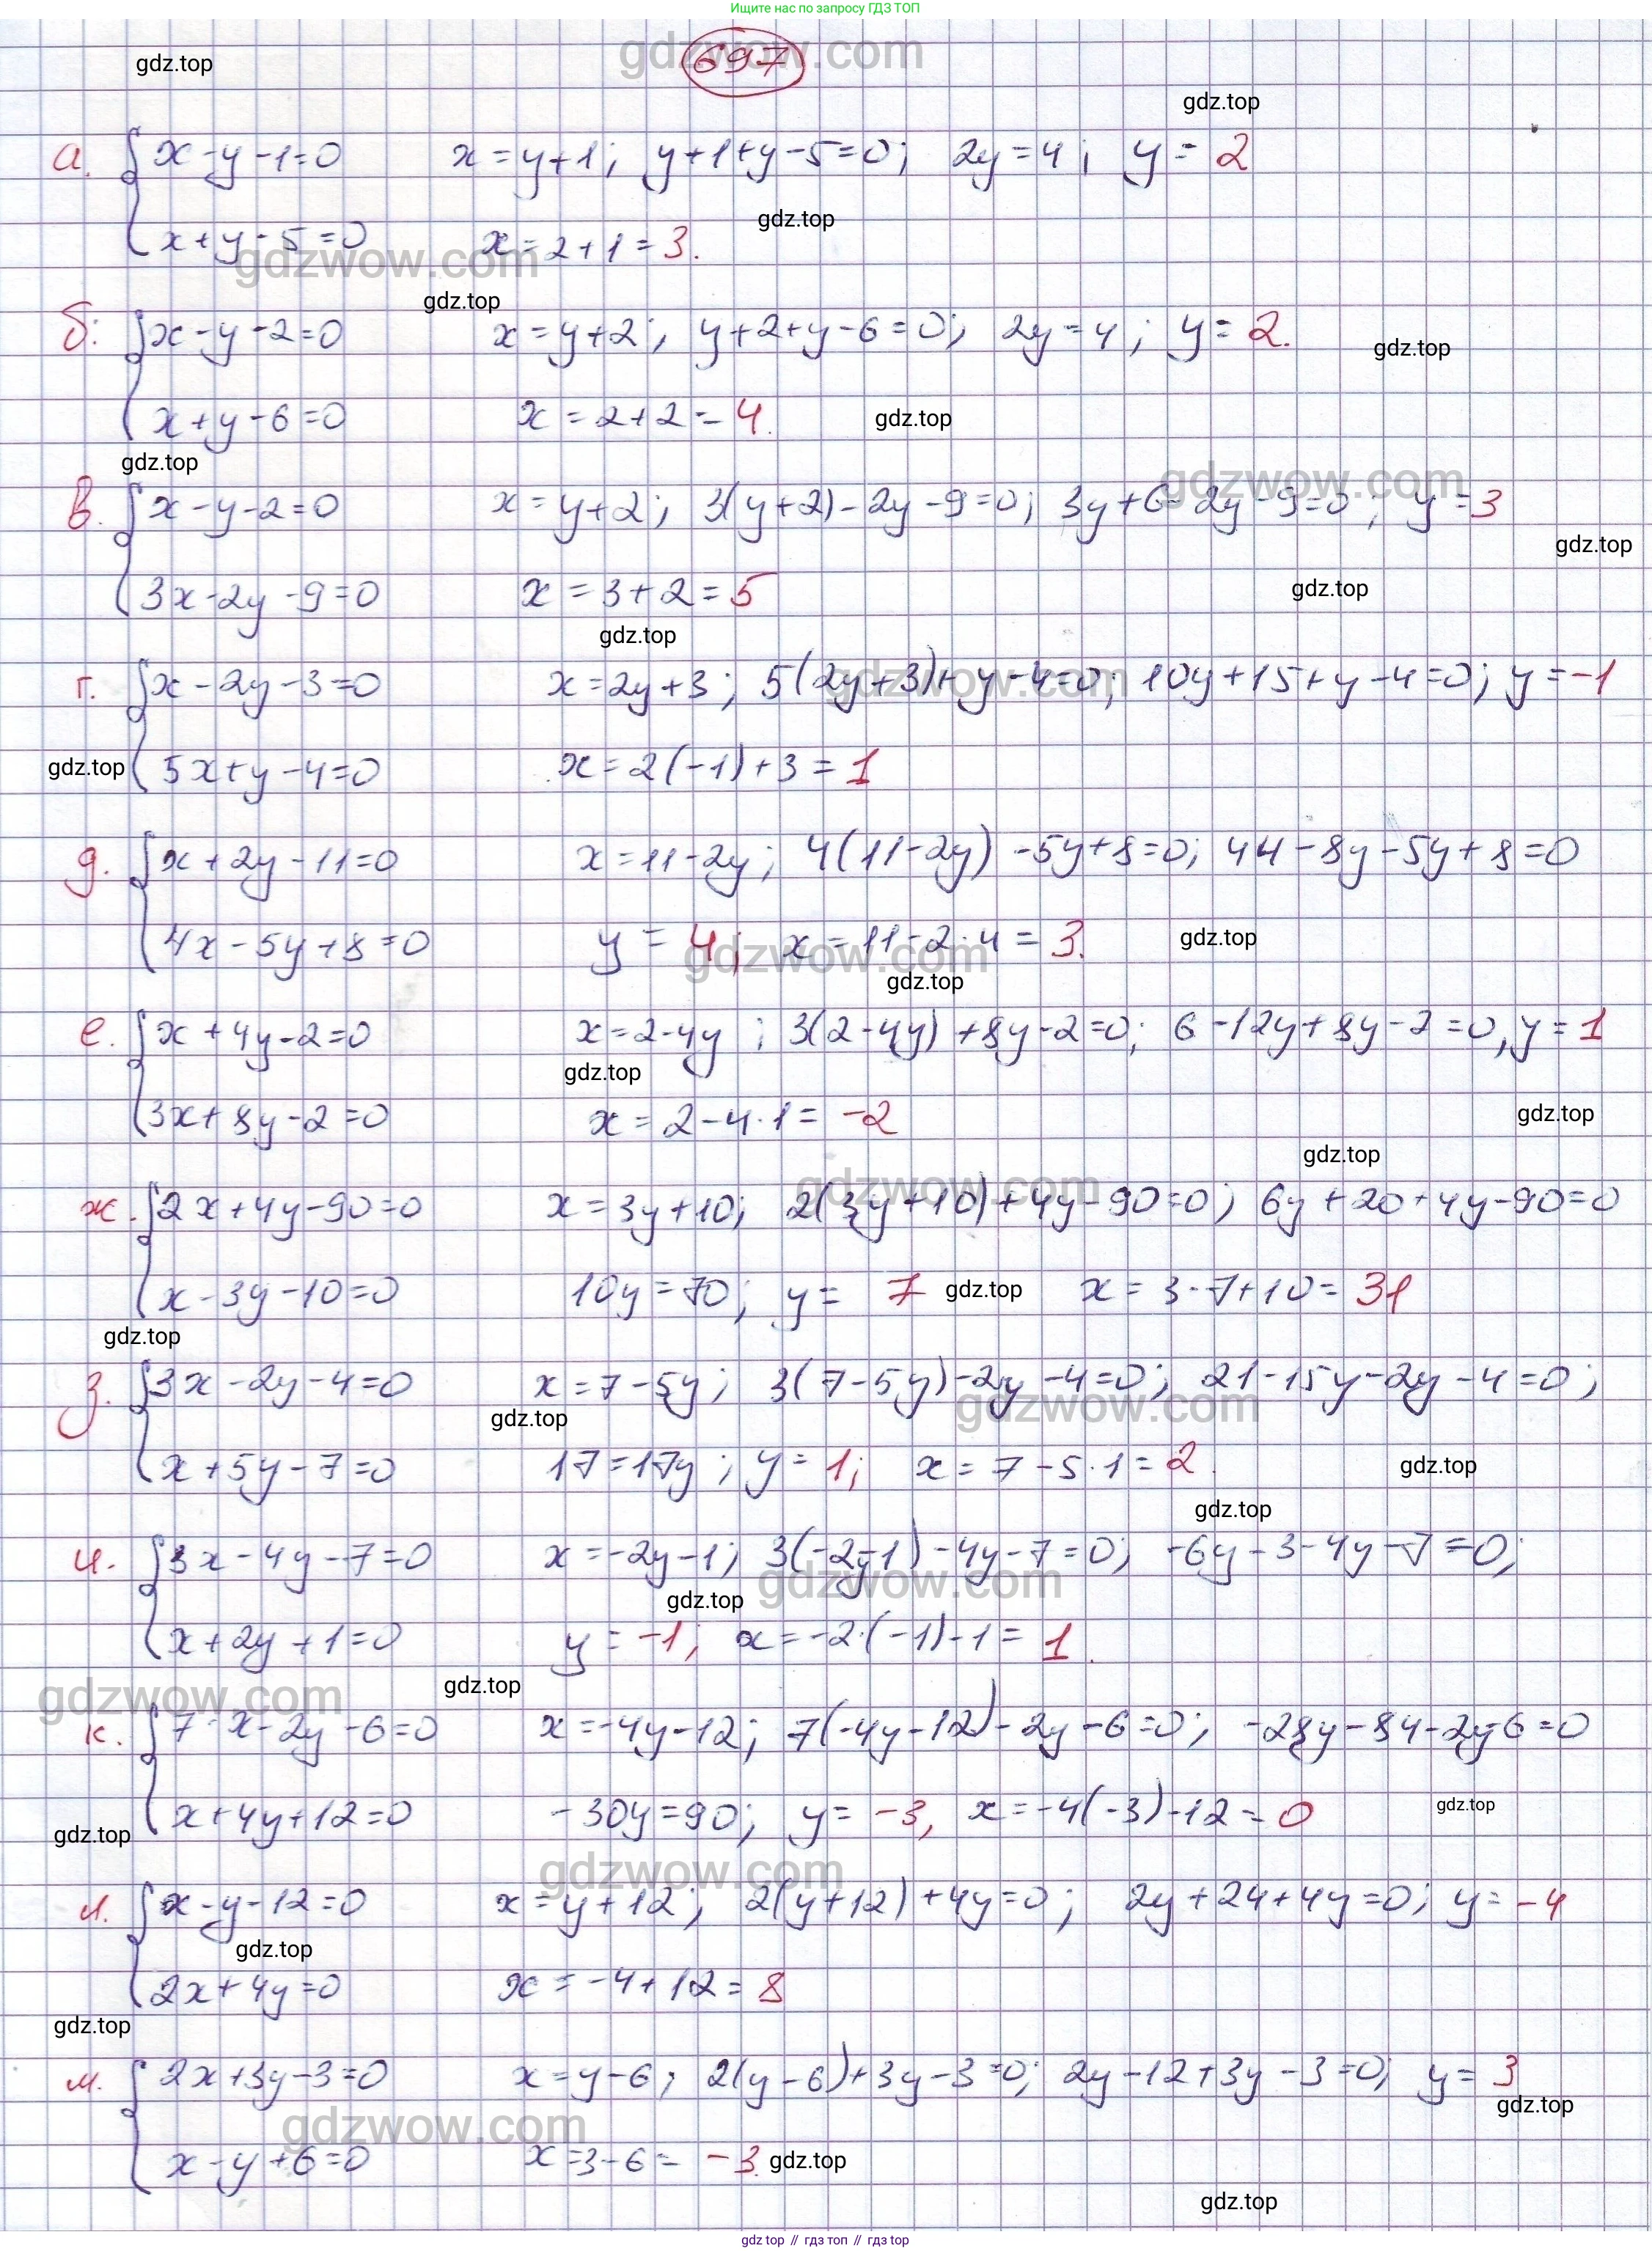 Ищите нас по запросу ГДЗ ТОП
gdzwow.com
697
gdz.top
gdz.top
а. { x-y-1=0 x=y+1; y+1+y-5=0; 2y=4; y=2
gdz.top
x+y-5=0 x=2+1=3.
gdzwow.com
gdz.top
б: { x-y-2=0 x=y+2; y+2+y-6=0; 2y=4; y=2.
gdz.top
x+y-6=0 x=2+2=4. gdz.top
gdz.top
gdzwow.com
в. { x-y-2=0 x=y+2; 3(y+2)-2y-9=0; 3y+6-2y-9=0; y=3
gdz.top
3x-2y-9=0 x=3+2=5 gdz.top
gdz.top
gdzwow.com
г. { x-2y-3=0 x=2y+3; 5(2y+3)+y-4=0; 10y+15+y-4=0; y=-1
gdz.top 5x+y-4=0 x=2(-1)+3=1
д. { x+2y-11=0 x=11-2y; 4(11-2y)-5y+8=0; 44-8y-5y+8=0
4x-5y+8=0 y=4; x=11-2·4=3. gdz.top
gdzwow.com
gdz.top
е. { x+4y-2=0 x=2-4y; 3(2-4y)+8y-2=0; 6-12y+8y-2=0, y=1
gdz.top
3x+8y-2=0 x=2-4·1=-2 gdz.top
gdz.top
gdzwow.com
ж. { 2x+4y-90=0 x=3y+10; 2(3y+10)+4y-90=0; 6y+20+4y-90=0
x-3y-10=0 10y=70; y=7 gdz.top x=3·7+10=31
gdz.top
з. { 3x-2y-4=0 x=7-5y; 3(7-5y)-2y-4=0; 21-15y-2y-4=0;
gdzwow.com
gdz.top
x+5y-7=0 17=17y; y=1; x=7-5·1=2. gdz.top
gdz.top
и. { 3x-4y-7=0 x=-2y-1; 3(-2y-1)-4y-7=0; -6y-3-4y-7=0;
gdzwow.com
gdz.top
x+2y+1=0 y=-1; x=-2·(-1)-1=1.
gdz.top
gdzwow.com
к. { 7·x-2y-6=0 x=-4y-12; 7(-4y-12)-2y-6=0; -28y-84-2y-6=0
gdz.top
x+4y+12=0 -30y=90; y=-3, x=-4(-3)-12=0
gdz.top
gdzwow.com
л. { x-y-12=0 x=y+12; 2(y+12)+4y=0; 2y+24+4y=0; y=-4
gdz.top
2x+4y=0 x=-4+12=8
gdz.top
м. { 2x+3y-3=0 x=y-6; 2(y-6)+3y-3=0; 2y-12+3y-3=0; y=3
gdz.top
gdzwow.com
x-y+6=0 x=3-6=-3. gdz.top
gdz.top
gdz top // гдз топ // gdz top